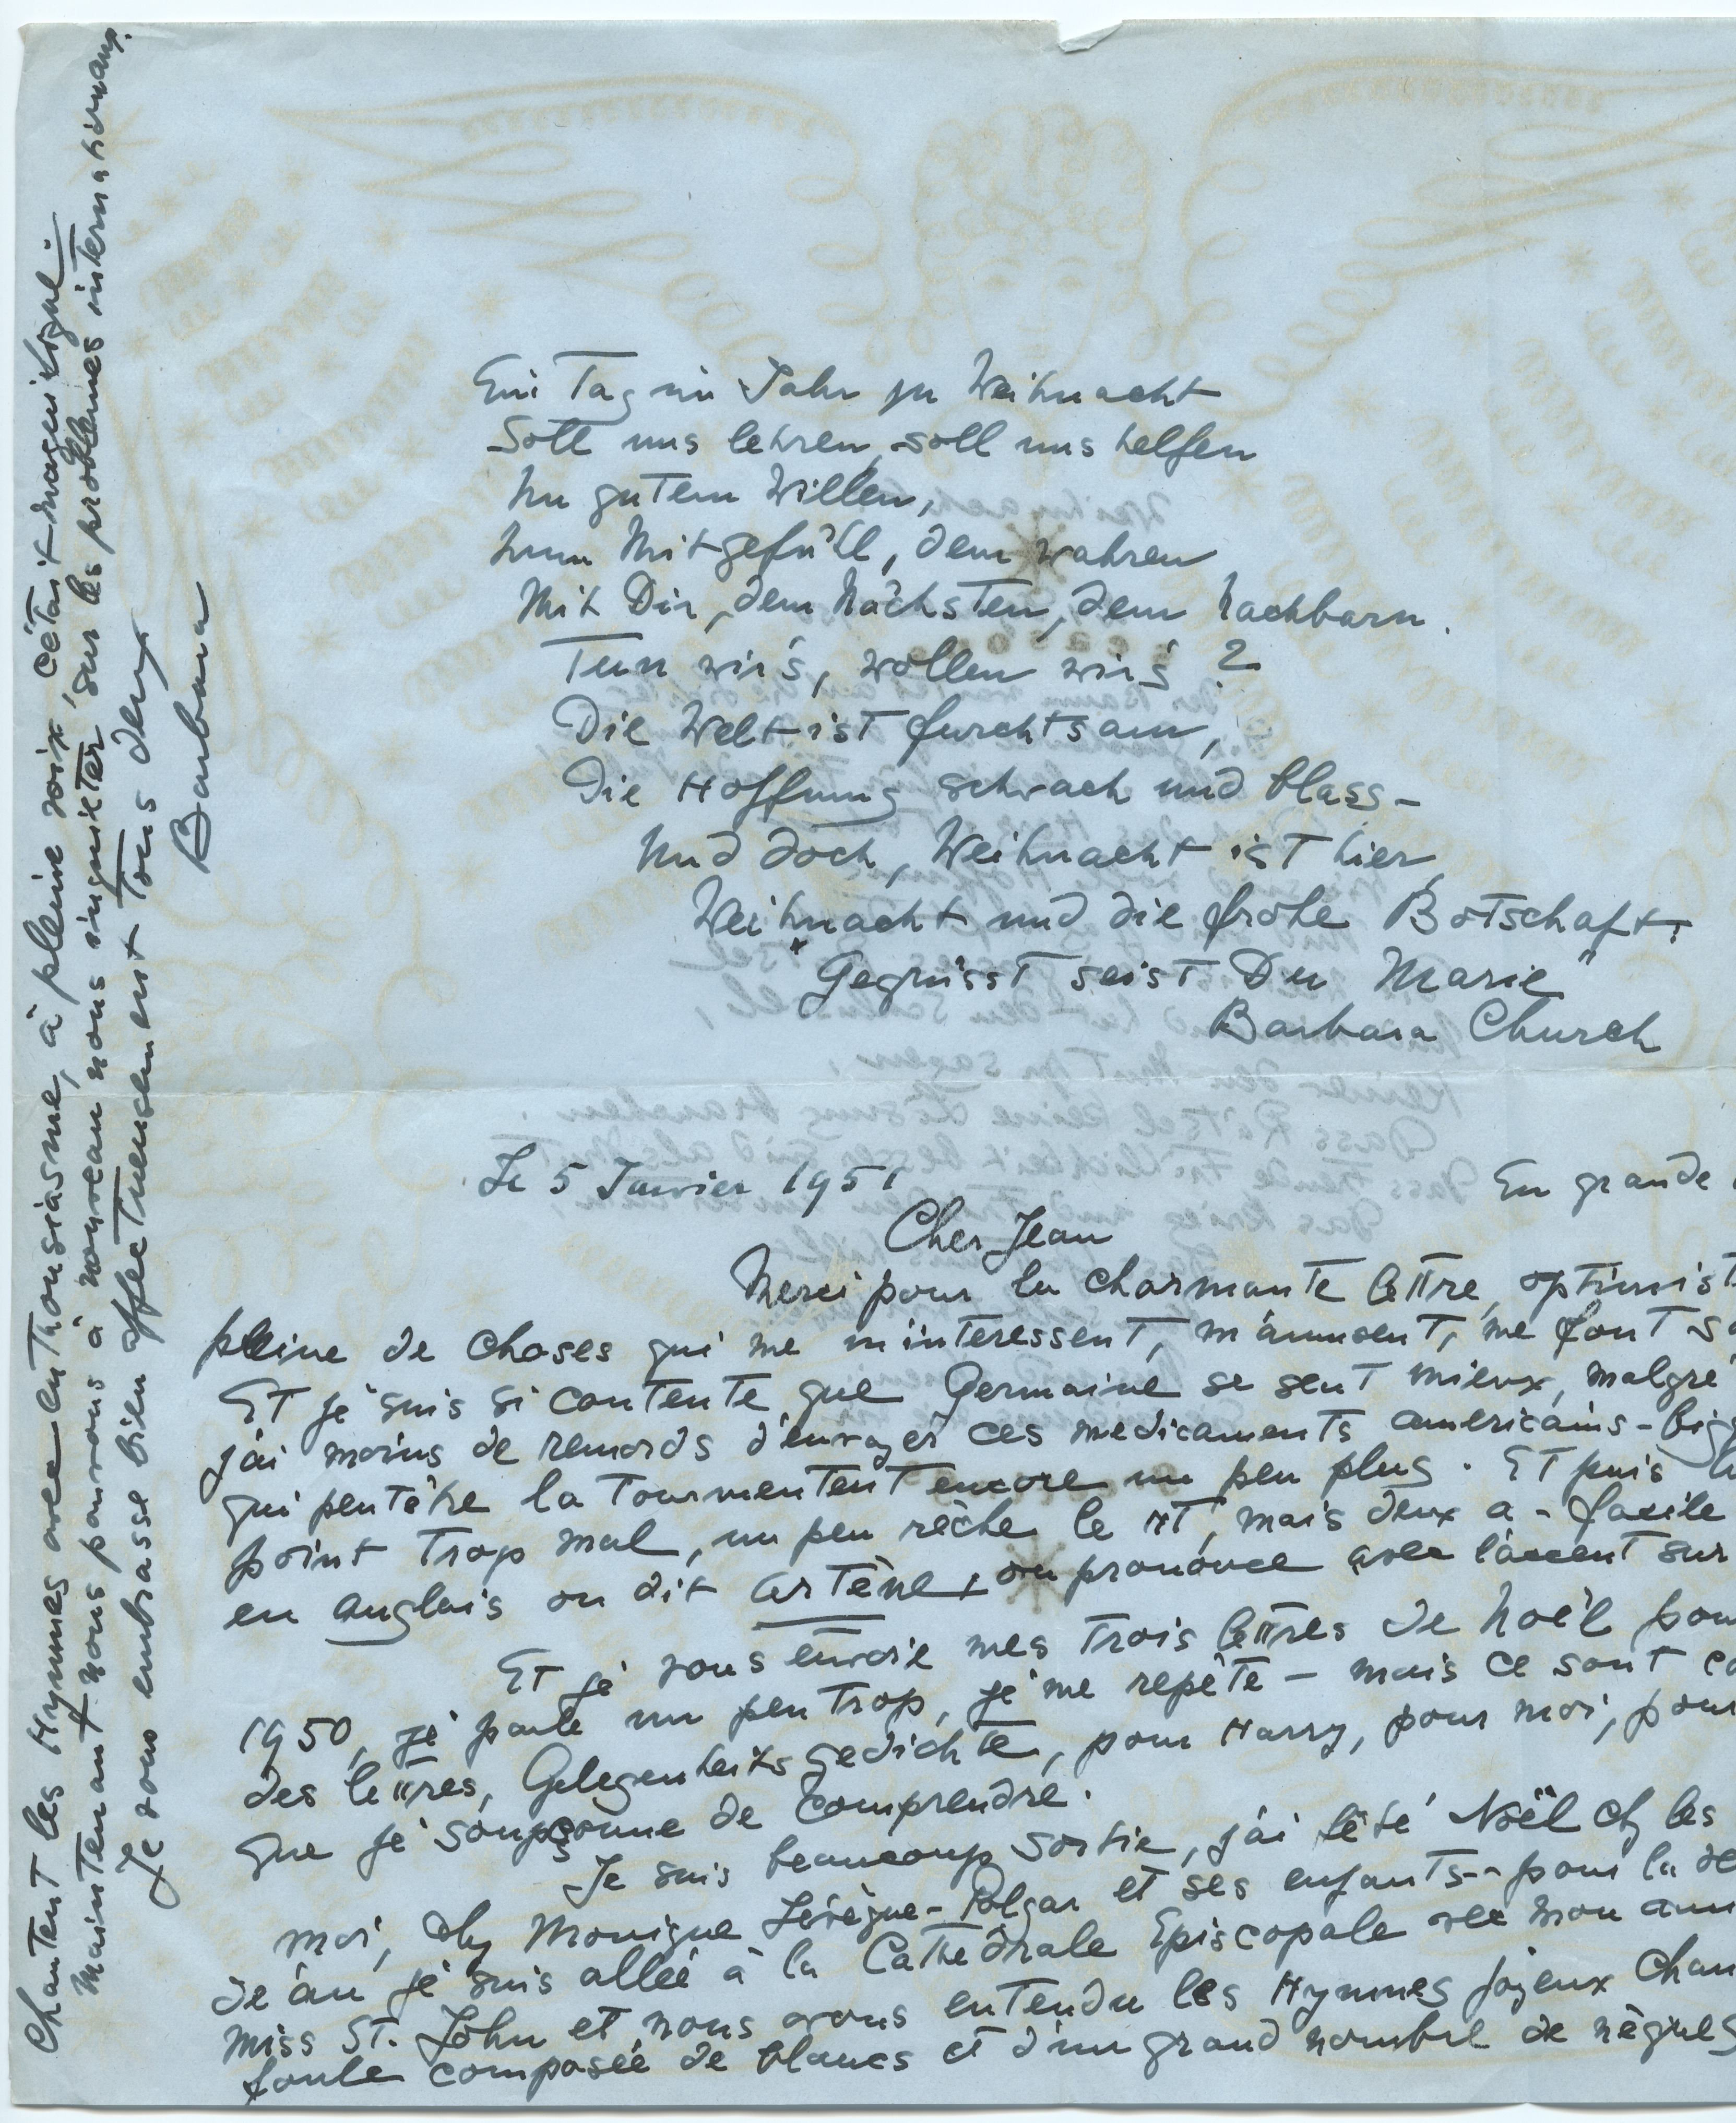 Ein Tag im Jahr zu Weihnacht
Soll uns lehren, soll uns helfen
Zu gutem Willen,
Zum Mitgefühl, dem wahren
Mit Dir, dem Nächsten, dem Nachbarn.
Tun wir's, wollen wir's ?
Die Welt ist furchtsam,
Die Hoffnung schwach und blass -
Und doch, Weihnacht ist hier,
Weihnacht und die frohe Botschaft:
"Gegrüsst seist Du Marie"
Barbara Church
Le 5 Janvier 1951
En grande
Cher Jean
Merci pour la charmante lettre, optimist
pleine de choses qui me m'interessent, m'amusent, me font
Et je suis si contente que Germaine se sent mieux, malgré
j'ai moins de remords d'envoyer ces medicaments americains -
qui peutêtre la tourmentent encore un peu plus. Et puis
point trop mal, un peu rêche le HT, mais deux a - facile
en anglais on dit artène, on prononce avec l'accent sur
Et je vous envoie mes trois lettres de Noël pour
1950, je parle un peu trop, je me repête - mais ce sont
des lettres, Gelegenheitsgedichte, pour Harry, pour moi, pour
que je soupçonne de comprendre.
Je suis beaucoup sortie, j'ai fêté Noël chz les
moi, chz Monique Lévêque-Polgar et ses enfants -- pour la
de l'an je suis allée à la Cathédrale Episcopale avec mon
miss St. John et nous avons entendu les Hymnes joyeux
foule composée de blancs et d'un grand nombre de nègres
chantent les Hymnes avec enthousiasme, à pleine voix, c'était magnifique.
Maintenant nous pouvons à nouveau nous inquieter sur les problèmes internationaux.
Je vous embrasse bien affectueusement tous deux
Barbara